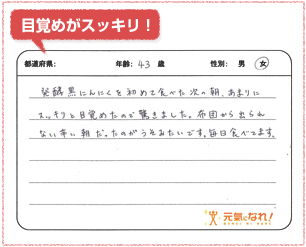 目覚めがスッキリ!
都道府県: 年齢: 43 歳 性別: 男 女
発酵黒にんにくを初めて食べた次の朝、あまりに
スッキリと目覚めたので驚きました。布団から出られ
ない辛い朝だったのがうそみたいです。毎日食べてます。
元氣になれ!
GENKI NI NARE